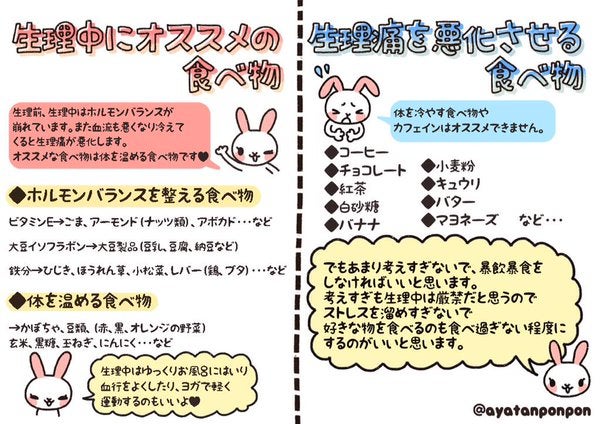 生理中にオススメの
食べ物
生理前、生理中はホルモンバランスが
崩れています。また血流も悪くなり冷えて
くると生理痛が悪化します。
オススメな食べ物は体を温める食べ物です♥
◆ホルモンバランスを整える食べ物
ビタミンE→ごま、アーモンド(ナッツ類)、アボカド…など
大豆イソフラボン→大豆製品(豆乳、豆腐、納豆など)
鉄分→ひじき、ほうれん草、小松菜、レバー(鶏、ブタ)…など
◆体を温める食べ物
→かぼちゃ、豆類、(赤、黒、オレンジの野菜)
玄米、黒糖、玉ねぎ、にんにく…など
生理中はゆっくりお風呂にはいり
血行をよくしたり、ヨガで軽く
運動するのもいいよ♥
生理痛を悪化させる
食べ物
体を冷やす食べ物や
カフェインはオススメできません。
◆コーヒー
◆チョコレート
◆紅茶
◆白砂糖
◆バナナ
◆小麦粉
◆キュウリ
◆バター
◆マヨネーズ など…
でもあまり考えすぎないで、暴飲暴食を
しなければいいと思います。
考えすぎも生理中は厳禁だと思うので
ストレスを溜めすぎないで
好きな物を食べるのも食べ過ぎない程度に
するのがいいと思います。
@ayatanponpon